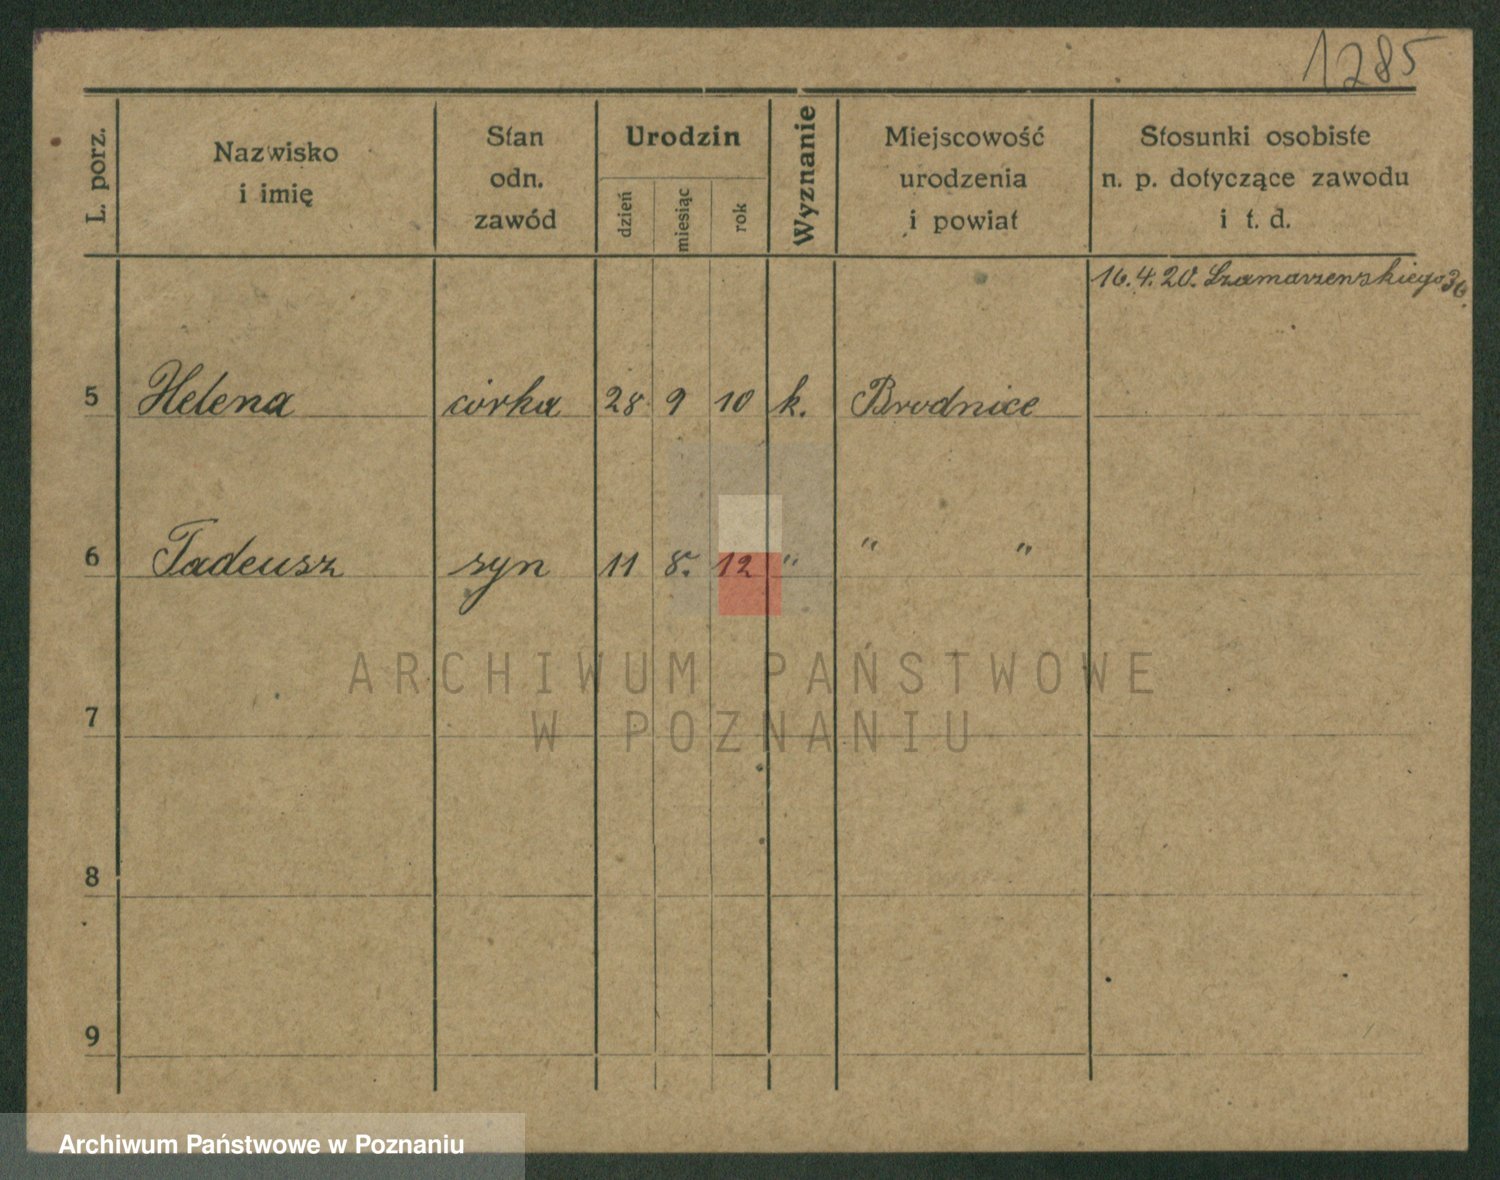 1285
L. porz.
Nazwisko
i imię
Stan
odn.
zawód
Urodzin
dzień
miesiąc
rok
Wyznanie
Miejscowość
urodzenia
i powiat
Stosunki osobiste
n. p. dotyczące zawodu
i t. d.
16.4.20. Szamarzenskiego 36.
5 Helena córka 28 9 10 k. Brodnice
6 Tadeusz syn 11 8. 12 " " "
7
8
9
ARCHIWUM PAŃSTWOWE
W POZNANIU
Archiwum Państwowe w Poznaniu